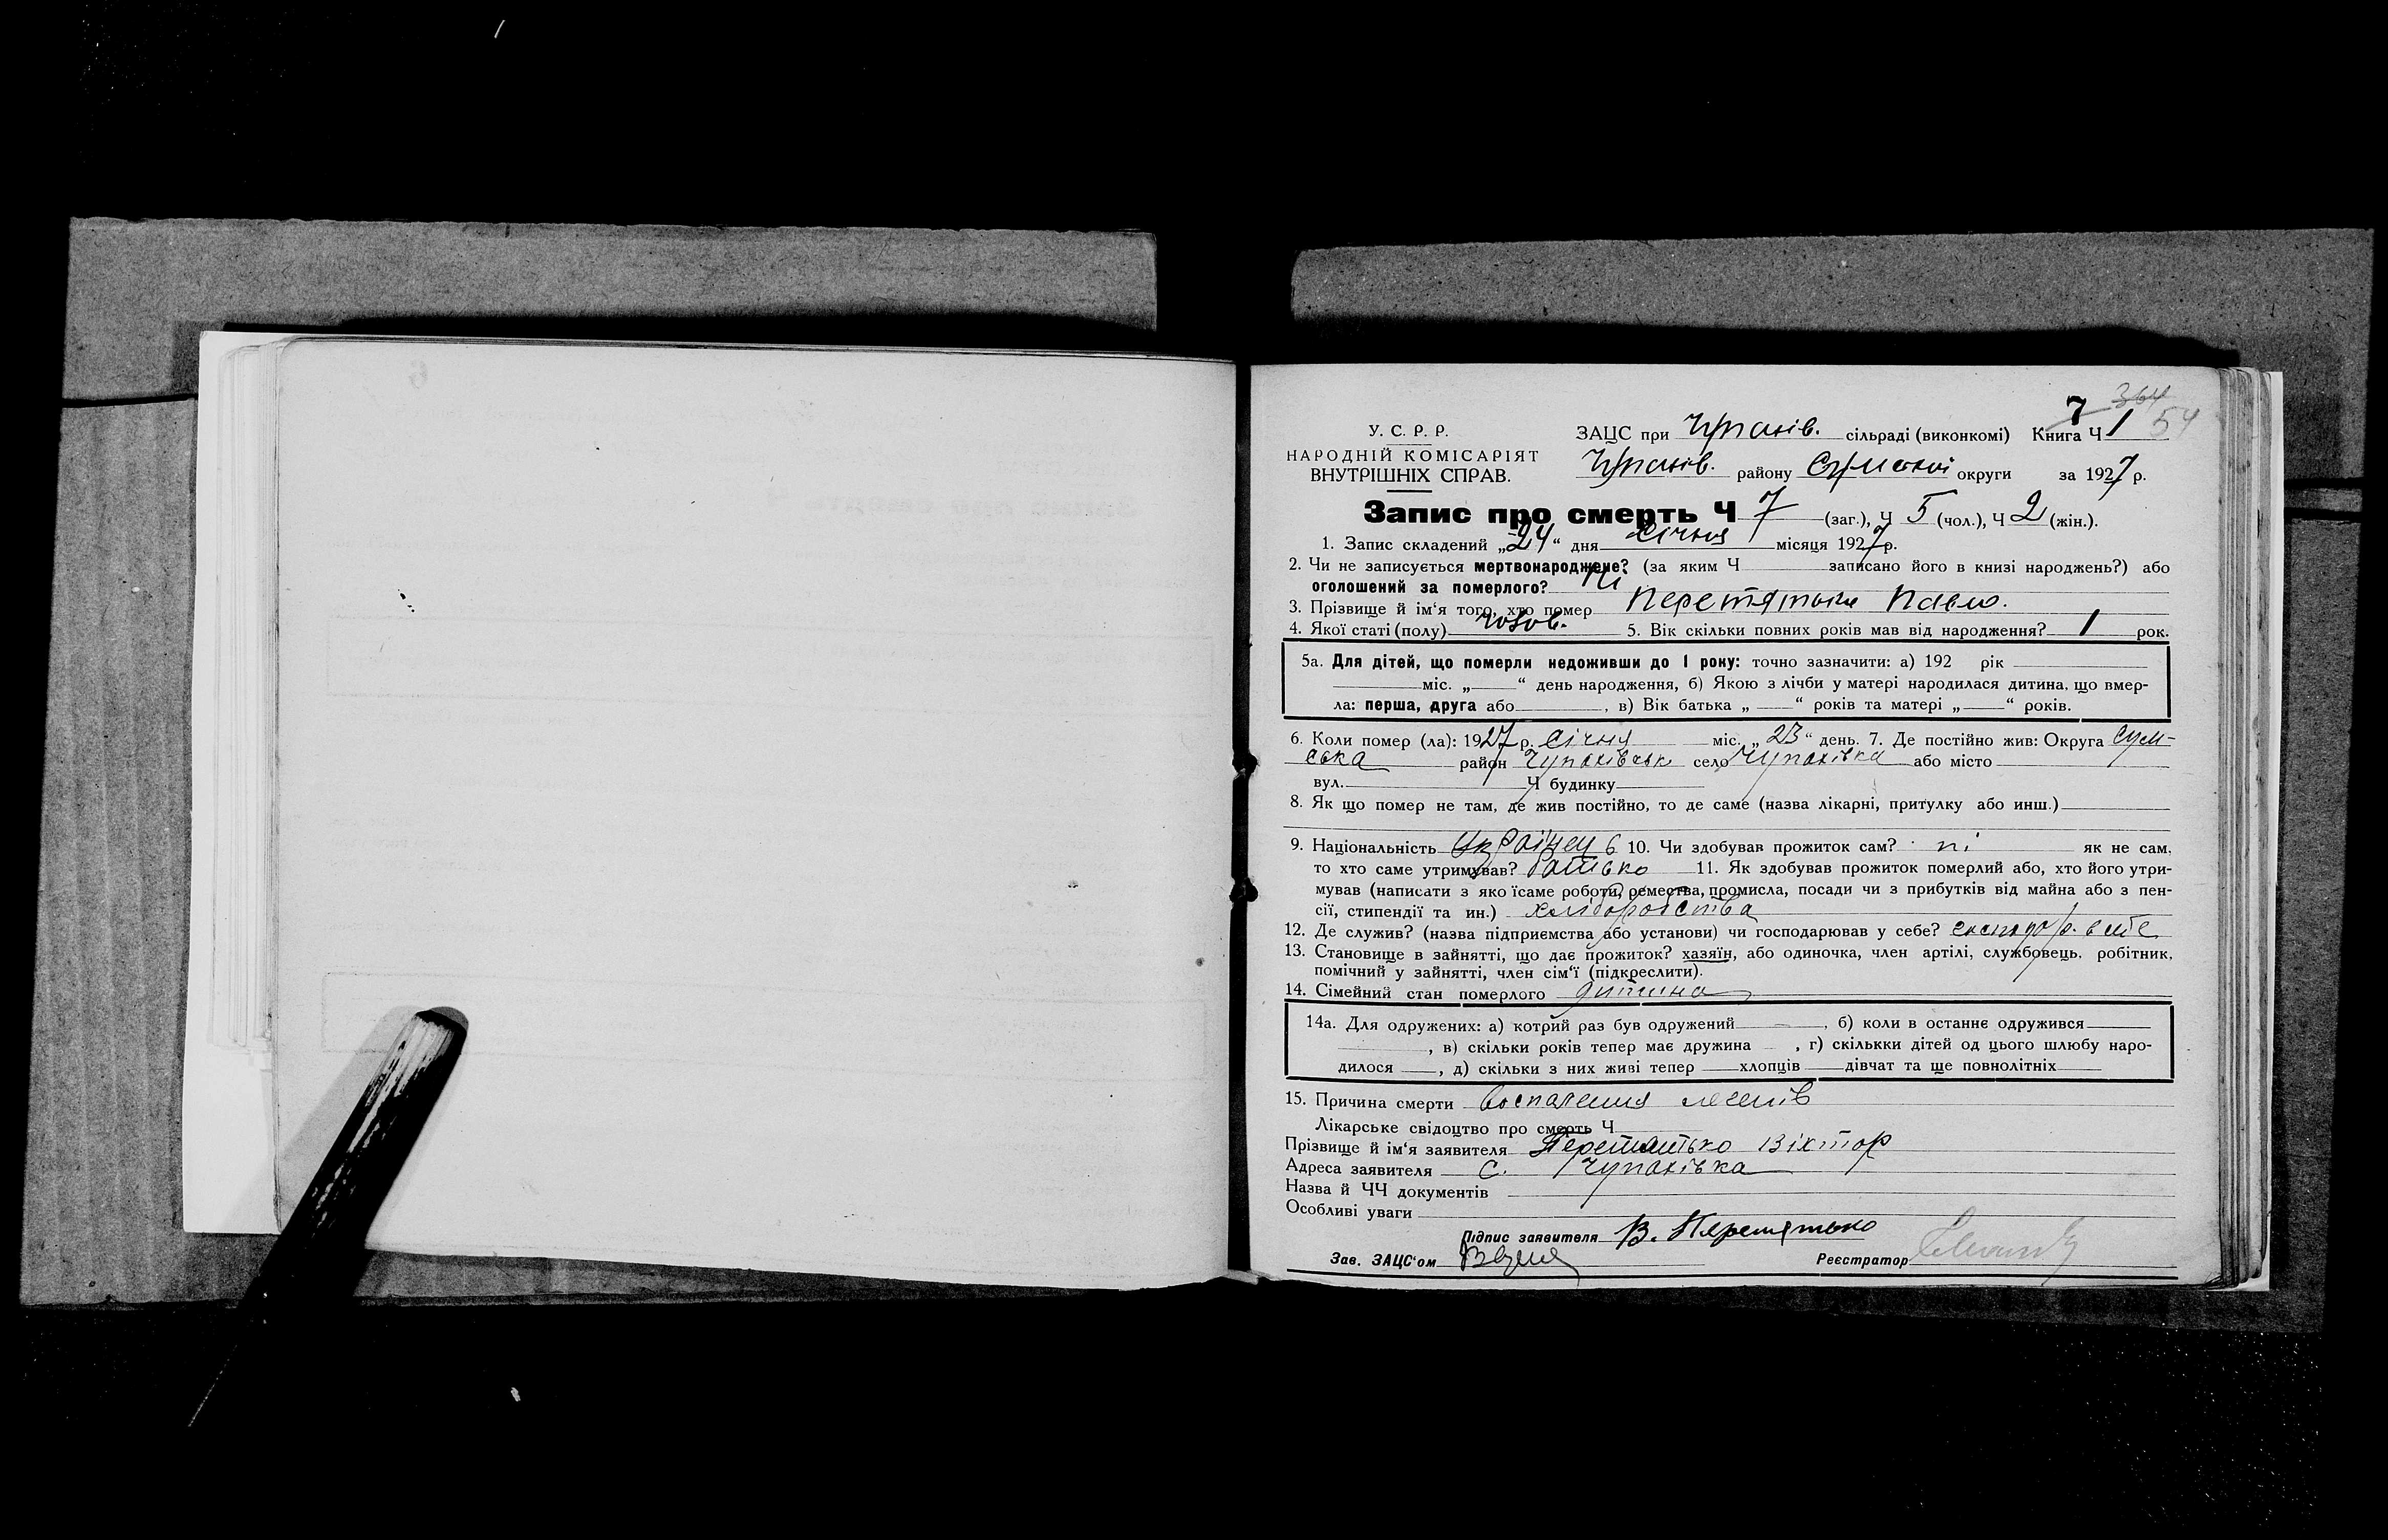 7 364
У. С. Р. Р. ЗАЦС при Чупахів. сільраді (виконкомі) Книга Ч 1 54
НАРОДНІЙ КОМІСАРІЯТ
ВНУТРІШНІХ СПРАВ. Чупахів. району Сумської округи за 1927 р.
Запис про смерть Ч 7 (заг.), Ч 5 (чол.), Ч 2 (жін.).
1. Запис складений „24“ дня Січня місяця 1927 р.
2. Чи не записується мертвонароджене? (за яким Ч записано його в книзі народжень?) або
оголошений за померлого? Ні
3. Прізвище й ім‘я того, хто помер Перетятько Павло.
4. Якої статі (полу) Чолов. 5. Вік скільки повних років мав від народження? 1 рок.
5а. Для дітей, що померли недоживши до 1 року: точно зазначити: а) 192 рік
міс. „ “ день народження, б) Якою з лічби у матері народилася дитина, що вмер-
ла: перша, друга або , в) Вік батька „ “ років та матері „ “ років.
6. Коли помер (ла): 1927 р. Січня міс. „23“ день. 7. Де постійно жив: Округа Сум-
ська район Чупахівськ село Чупахівка або місто
вул. Ч будинку
8. Як що помер не там, де жив постійно, то де саме (назва лікарні, притулку або инш.)
9. Національність Українець 10. Чи здобував прожиток сам? ні як не сам,
то хто саме утримував? батько 11. Як здобував прожиток померлий або, хто його утри-
мував (написати з яко їсаме роботи, ремества, промисла, посади чи з прибутків від майна або з пен-
сії, стипендії та ин.) хліборобства
12. Де служив? (назва підприємства або установи) чи господарював у себе?
13. Становище в зайнятті, що дає прожиток? хазяїн, або одиночка, член артілі, службовець, робітник,
помічний у зайнятті, член сім‘ї (підкреслити).
14. Сімейний стан померлого дитина
14а. Для одружених: а) котрий раз був одружений , б) коли в останнє одружився
, в) скільки років тепер має дружина , г) скількки дітей од цього шлюбу наро-
дилося , д) скільки з них живі тепер хлопців дівчат та ще повнолітніх
15. Причина смерти воспаления легенів
Лікарське свідоцтво про смерть Ч
Прізвище й ім‘я заявителя Перетятько Віктор
Адреса заявителя с. Чупахівка
Назва й ЧЧ документів
Особливі уваги
Підпис заявителя В. Перетятько
Зав. ЗАЦС‘ом Реєстратор